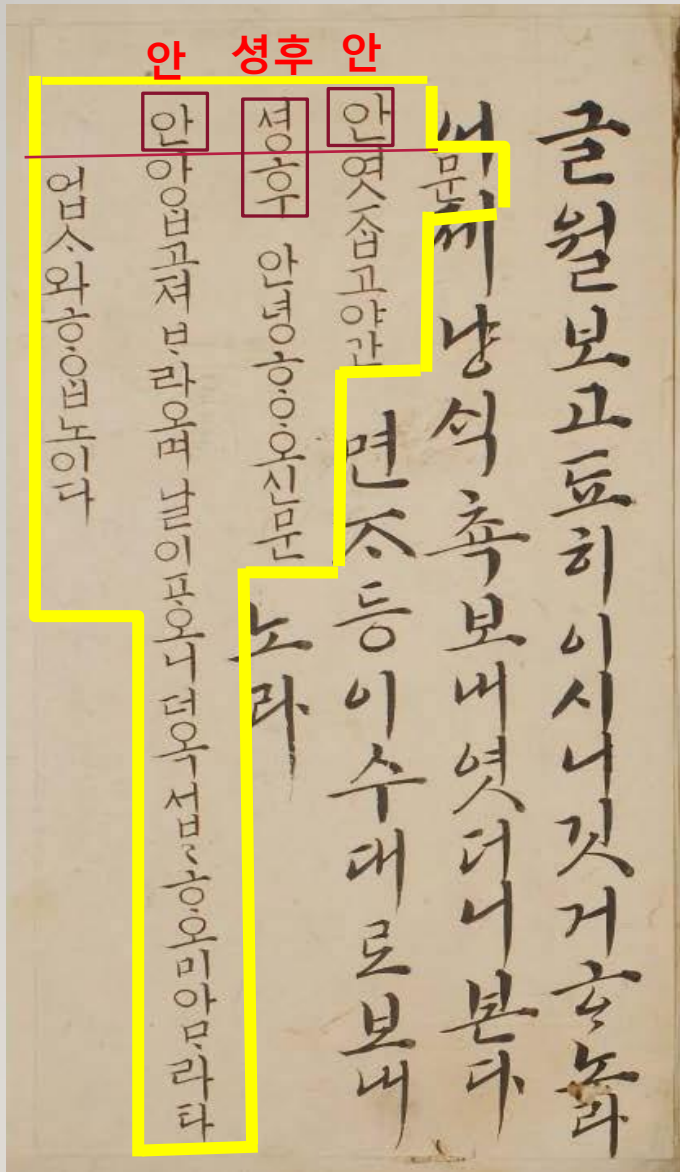 안 셩후 안
글월보고됴히이시니깃거ᄒᆞ노라
어제냥식쵹보내엿더니본다
면ᄌᆞ등이수대로보내
노라
문
안엿ᄌᆞᆸ고야간
셩후 안녕ᄒᆞᄋᆞ오신문
안아ᄋᆞᆸ고져ᄇᆞ라오며 날이ᄑᆞ오니더옥섭〃ᄒᆞ오미아ᄆᆞ라타
업ᄉᆞ와ᄒᆞᄋᆞᆸ노이다